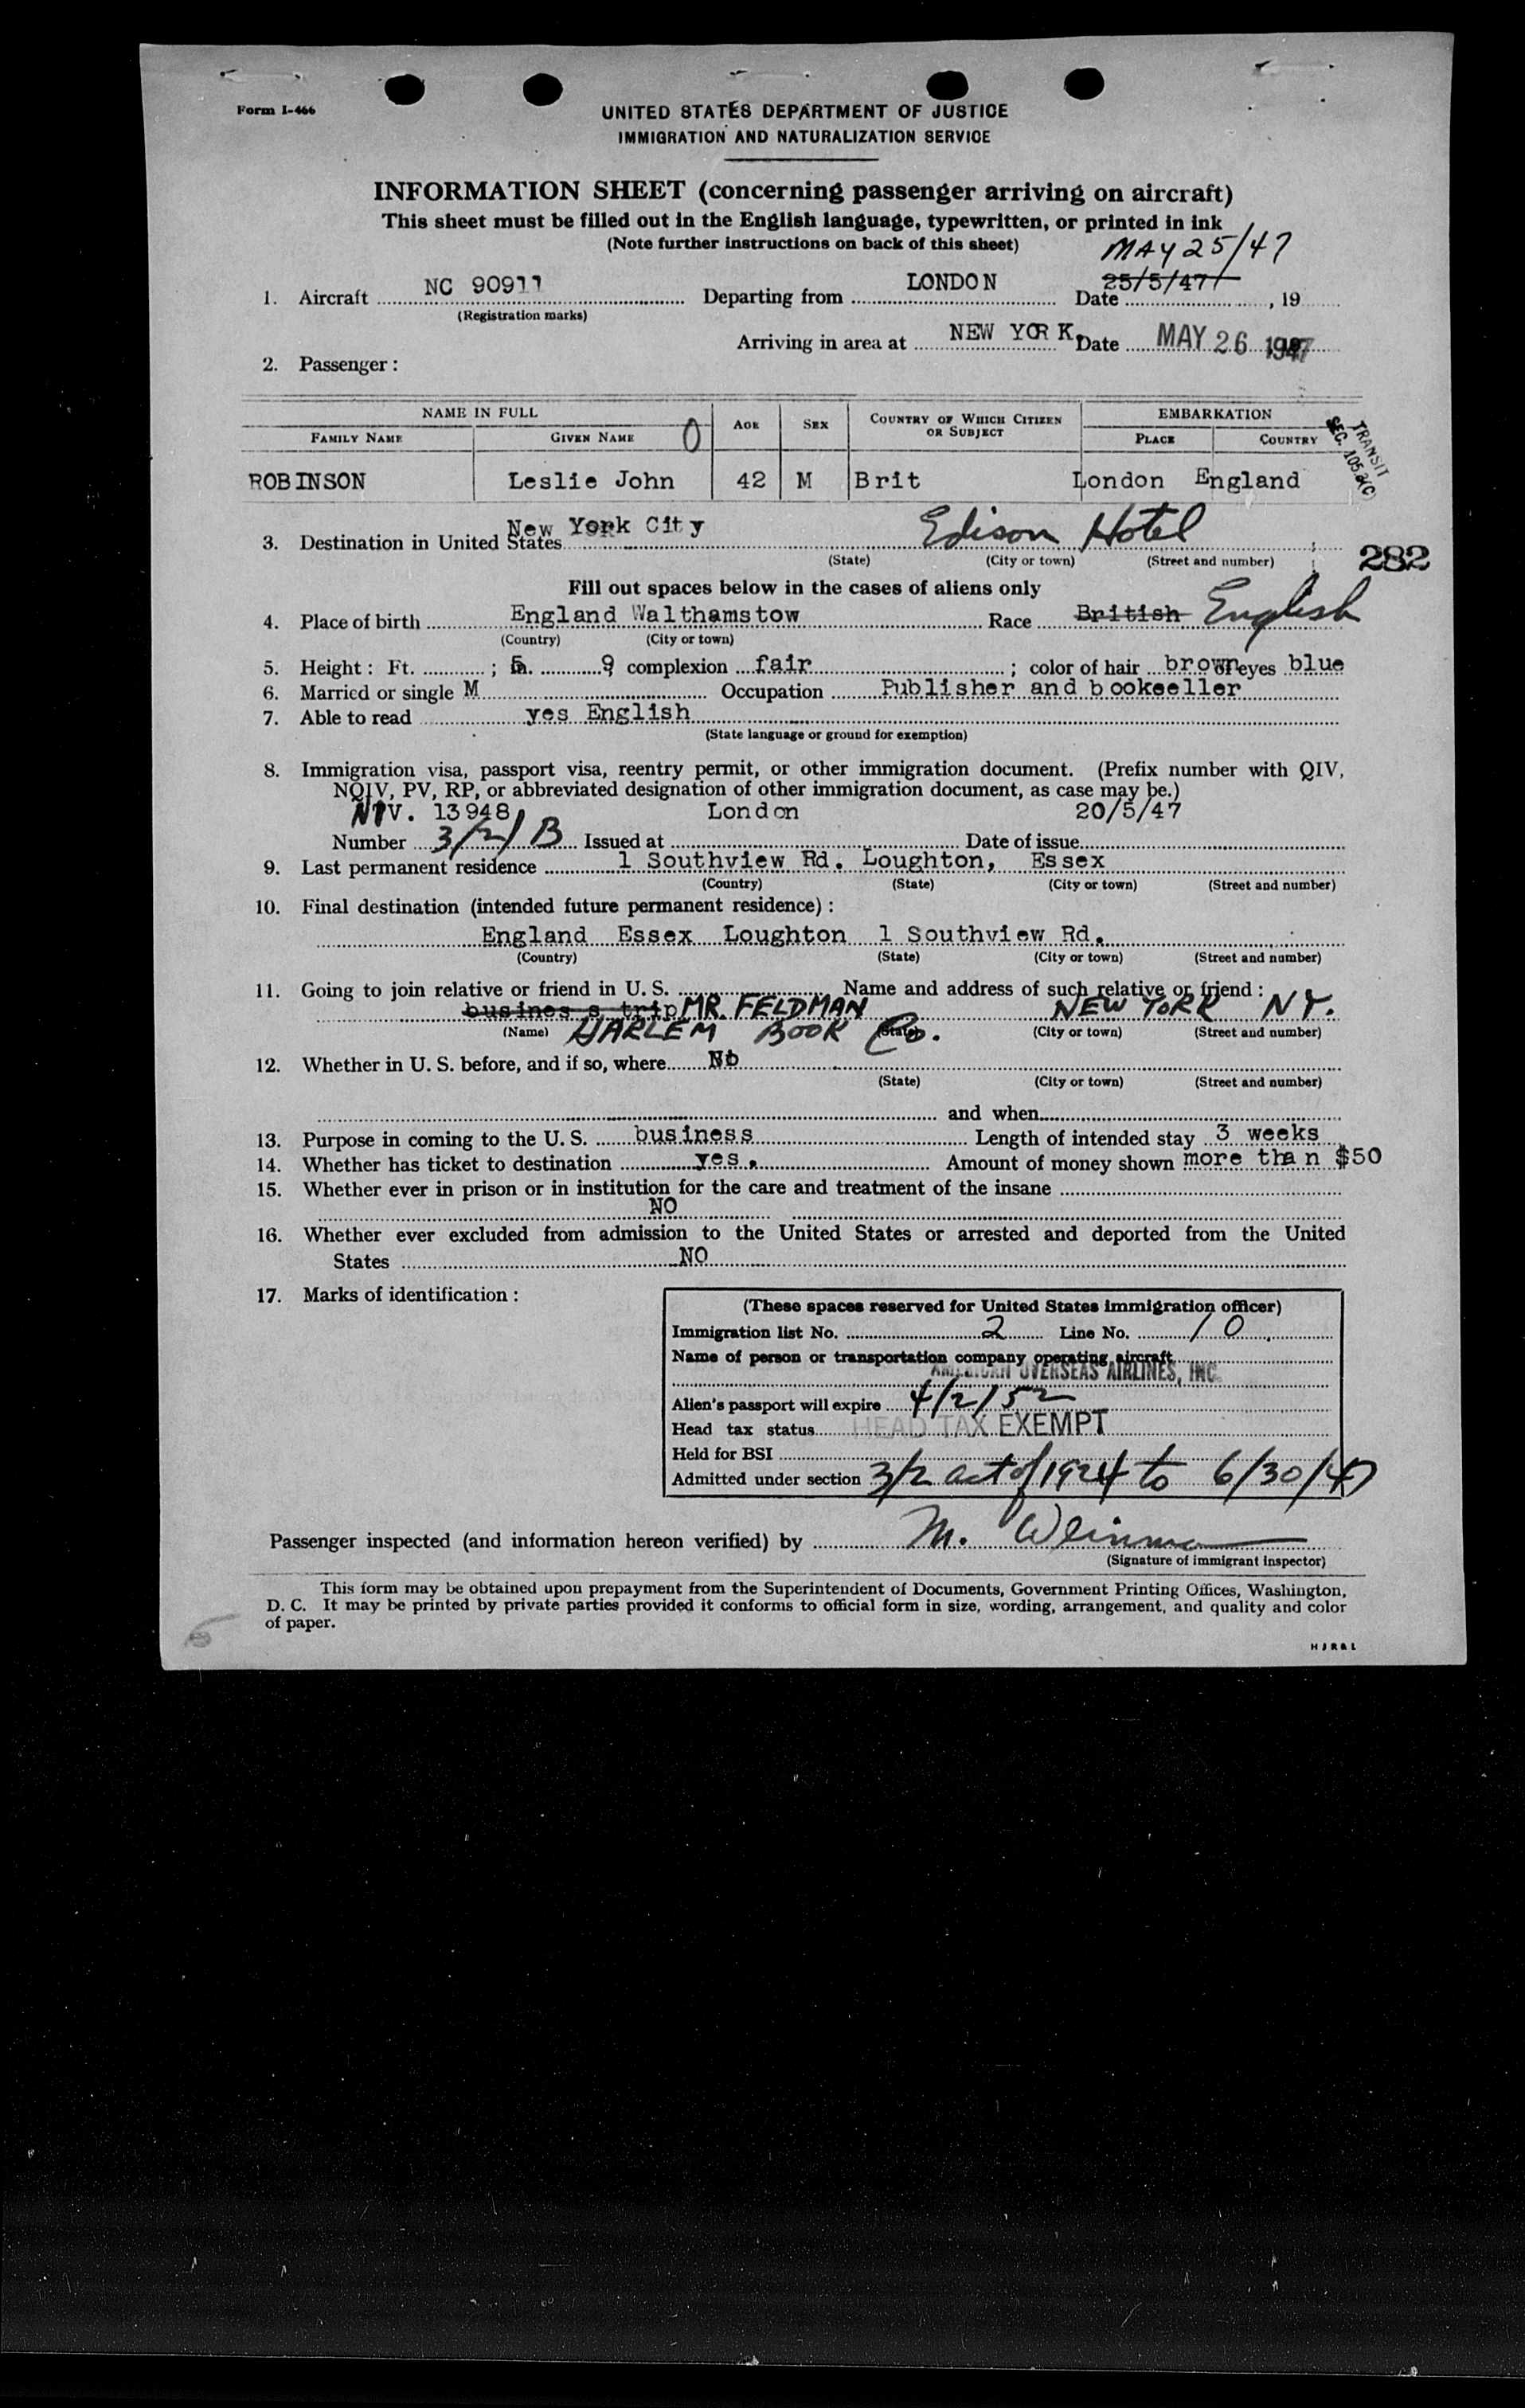 Form I-466
UNITED STATES DEPARTMENT OF JUSTICE
IMMIGRATION AND NATURALIZATION SERVICE
INFORMATION SHEET (concerning passenger arriving on aircraft)
This sheet must be filled out in the English language, typewritten, or printed in ink
(Note further instructions on back of this sheet)
MAY 25/47
1. Aircraft NC 90911 Departing from LONDON Date 25/5/47 , 19
(Registration marks)
Arriving in area at NEW YORK. Date MAY 26 1947
2. Passenger :
NAME IN FULL AGE SEX COUNTRY OF WHICH CITIZEN OR SUBJECT EMBARKATION
FAMILY NAME GIVEN NAME 0 PLACE COUNTRY
TRANSIT
SEC. 105.3(C)
ROBINSON Leslie John 42 M Brit London England
3. Destination in United States New York City Edison Hotel
(State) (City or town) (Street and number)
282
Fill out spaces below in the cases of aliens only
4. Place of birth England Walthamstow Race British English
(Country) (City or town)
5. Height : Ft. ; In. 5 9 complexion fair ; color of hair brown or eyes blue
6. Married or single M Occupation Publisher and bookseller
7. Able to read yes English
(State language or ground for exemption)
8. Immigration visa, passport visa, reentry permit, or other immigration document. (Prefix number with QIV,
NQIV, PV, RP, or abbreviated designation of other immigration document, as case may be.)
V. 13948 London 20/5/47
Number 3/2/B Issued at Date of issue
9. Last permanent residence 1 Southview Rd. Loughton, Essex
(Country) (State) (City or town) (Street and number)
10. Final destination (intended future permanent residence) :
England Essex Loughton 1 Southview Rd.
(Country) (State) (City or town) (Street and number)
11. Going to join relative or friend in U. S. Name and address of such relative or friend :
business trip MR. FELDMAN NEW YORK NY.
(Name) HARLEM BOOK Co. (State) (City or town) (Street and number)
12. Whether in U. S. before, and if so, where No
(State) (City or town) (Street and number)
and when
13. Purpose in coming to the U. S. business Length of intended stay 3 weeks
14. Whether has ticket to destination yes. Amount of money shown more than $50
15. Whether ever in prison or in institution for the care and treatment of the insane
NO
16. Whether ever excluded from admission to the United States or arrested and deported from the United
States NO
17. Marks of identification :
(These spaces reserved for United States immigration officer)
Immigration list No. 2 Line No. 10
Name of person or transportation company operating aircraft
AMERICAN OVERSEAS AIRLINES, INC.
Alien's passport will expire 4/2/52
Head tax status HEAD TAX EXEMPT
Held for BSI
Admitted under section 3/2 act of 1924 to 6/30/47
Passenger inspected (and information hereon verified) by M.
(Signature of immigrant inspector)
This form may be obtained upon prepayment from the Superintendent of Documents, Government Printing Offices, Washington,
D. C. It may be printed by private parties provided it conforms to official form in size, wording, arrangement, and quality and color
of paper.
H J R & L